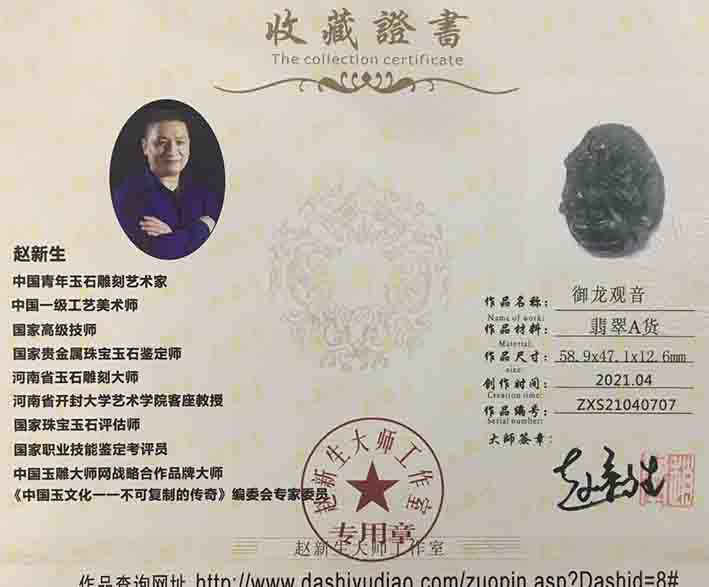 收藏證書
The collection certificate
赵新生
中国青年玉石雕刻艺术家
中国一级工艺美术师
国家高级技师
国家贵金属珠宝玉石鉴定师
河南省玉石雕刻大师
河南省开封大学艺术学院客座教授
国家珠宝玉石评估师
国家职业技能鉴定考评员
中国玉雕大师网战略合作品牌大师
《中国玉文化一一不可复制的传奇》编委会专家委员
作品名称: 御龙观音
Name of work:
作品材料: 翡翠A货
Material:
作品尺寸: 58.9x47.1x12.6mm
size:
创作时间: 2021.04
Creation time:
作品编号: ZXS21040707
Serial number:
大师签章: 赵新生
赵新生大师工作室
专用章
赵新生大师工作室
作品查询网址 http://www.dashiyudiao.com/zuopin.asp?Dashid=8#